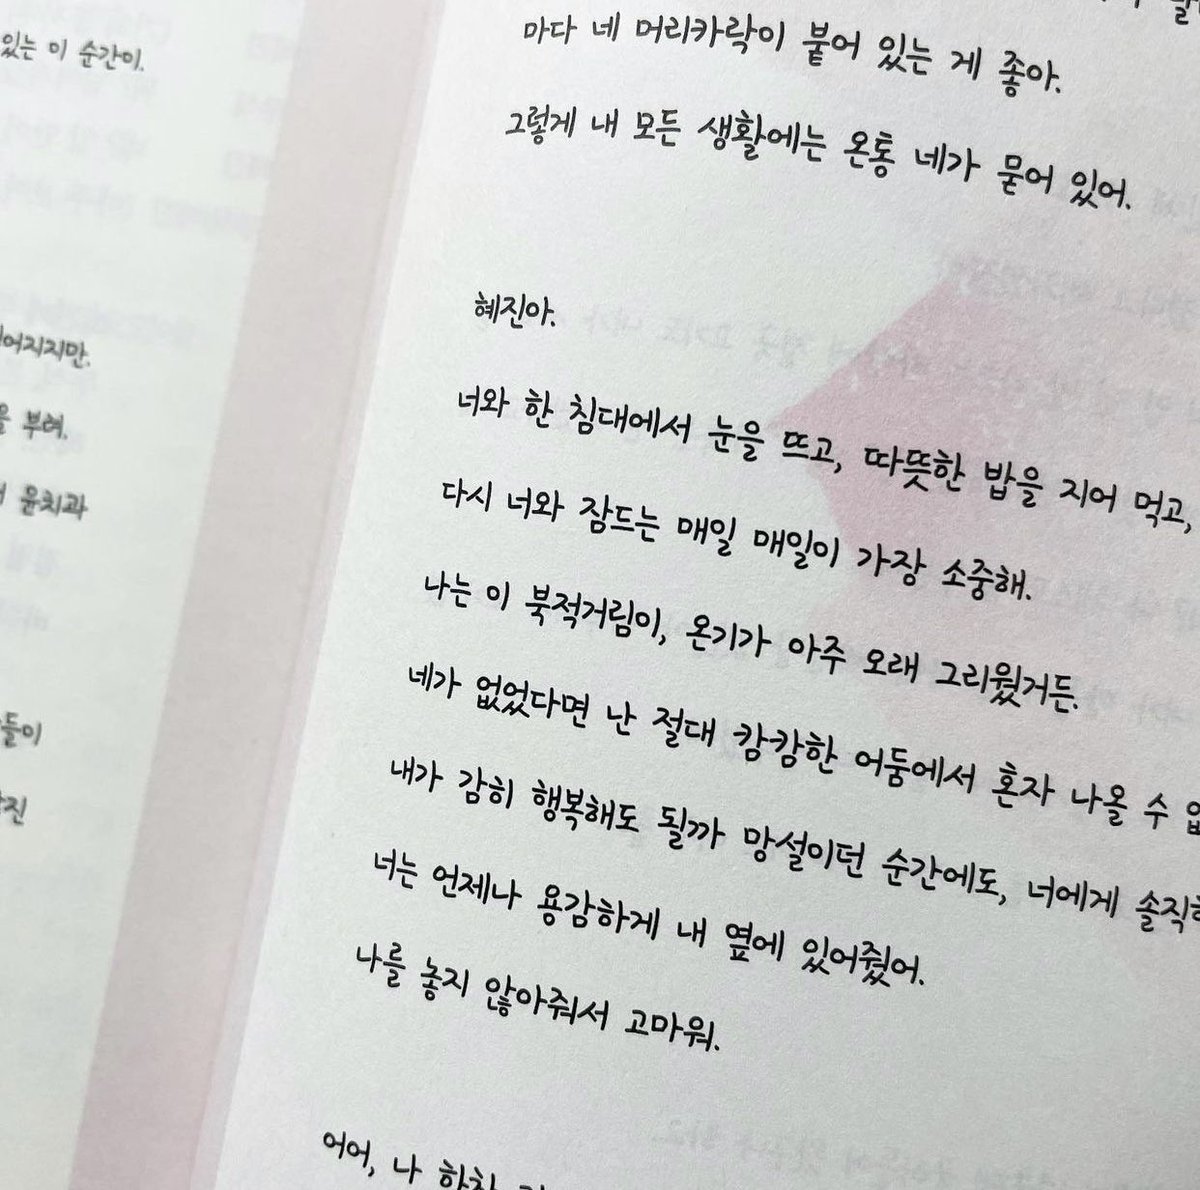 있는 이 순간이.
어지지만.
부려.
뭉치과
들이
마다 네 머리카락이 붙어 있는 게 좋아.
그렇게 내 모든 생활에는 온통 네가 묻어 있어.
혜진아.
너와 한 침대에서 눈을 뜨고, 따뜻한 밥을 지어 먹고,
다시 너와 잠드는 매일 매일이 가장 소중해.
나는 이 북적거림이, 온기가 아주 오래 그리웠거든.
네가 없었다면 난 절대 캄캄한 어둠에서 혼자 나올 수
내가 감히 행복해도 될까 망설이던 순간에도, 너에게 솔직
너는 언제나 용감하게 내 옆에 있어줬어.
나를 놓지 않아줘서 고마워.
어어, 나